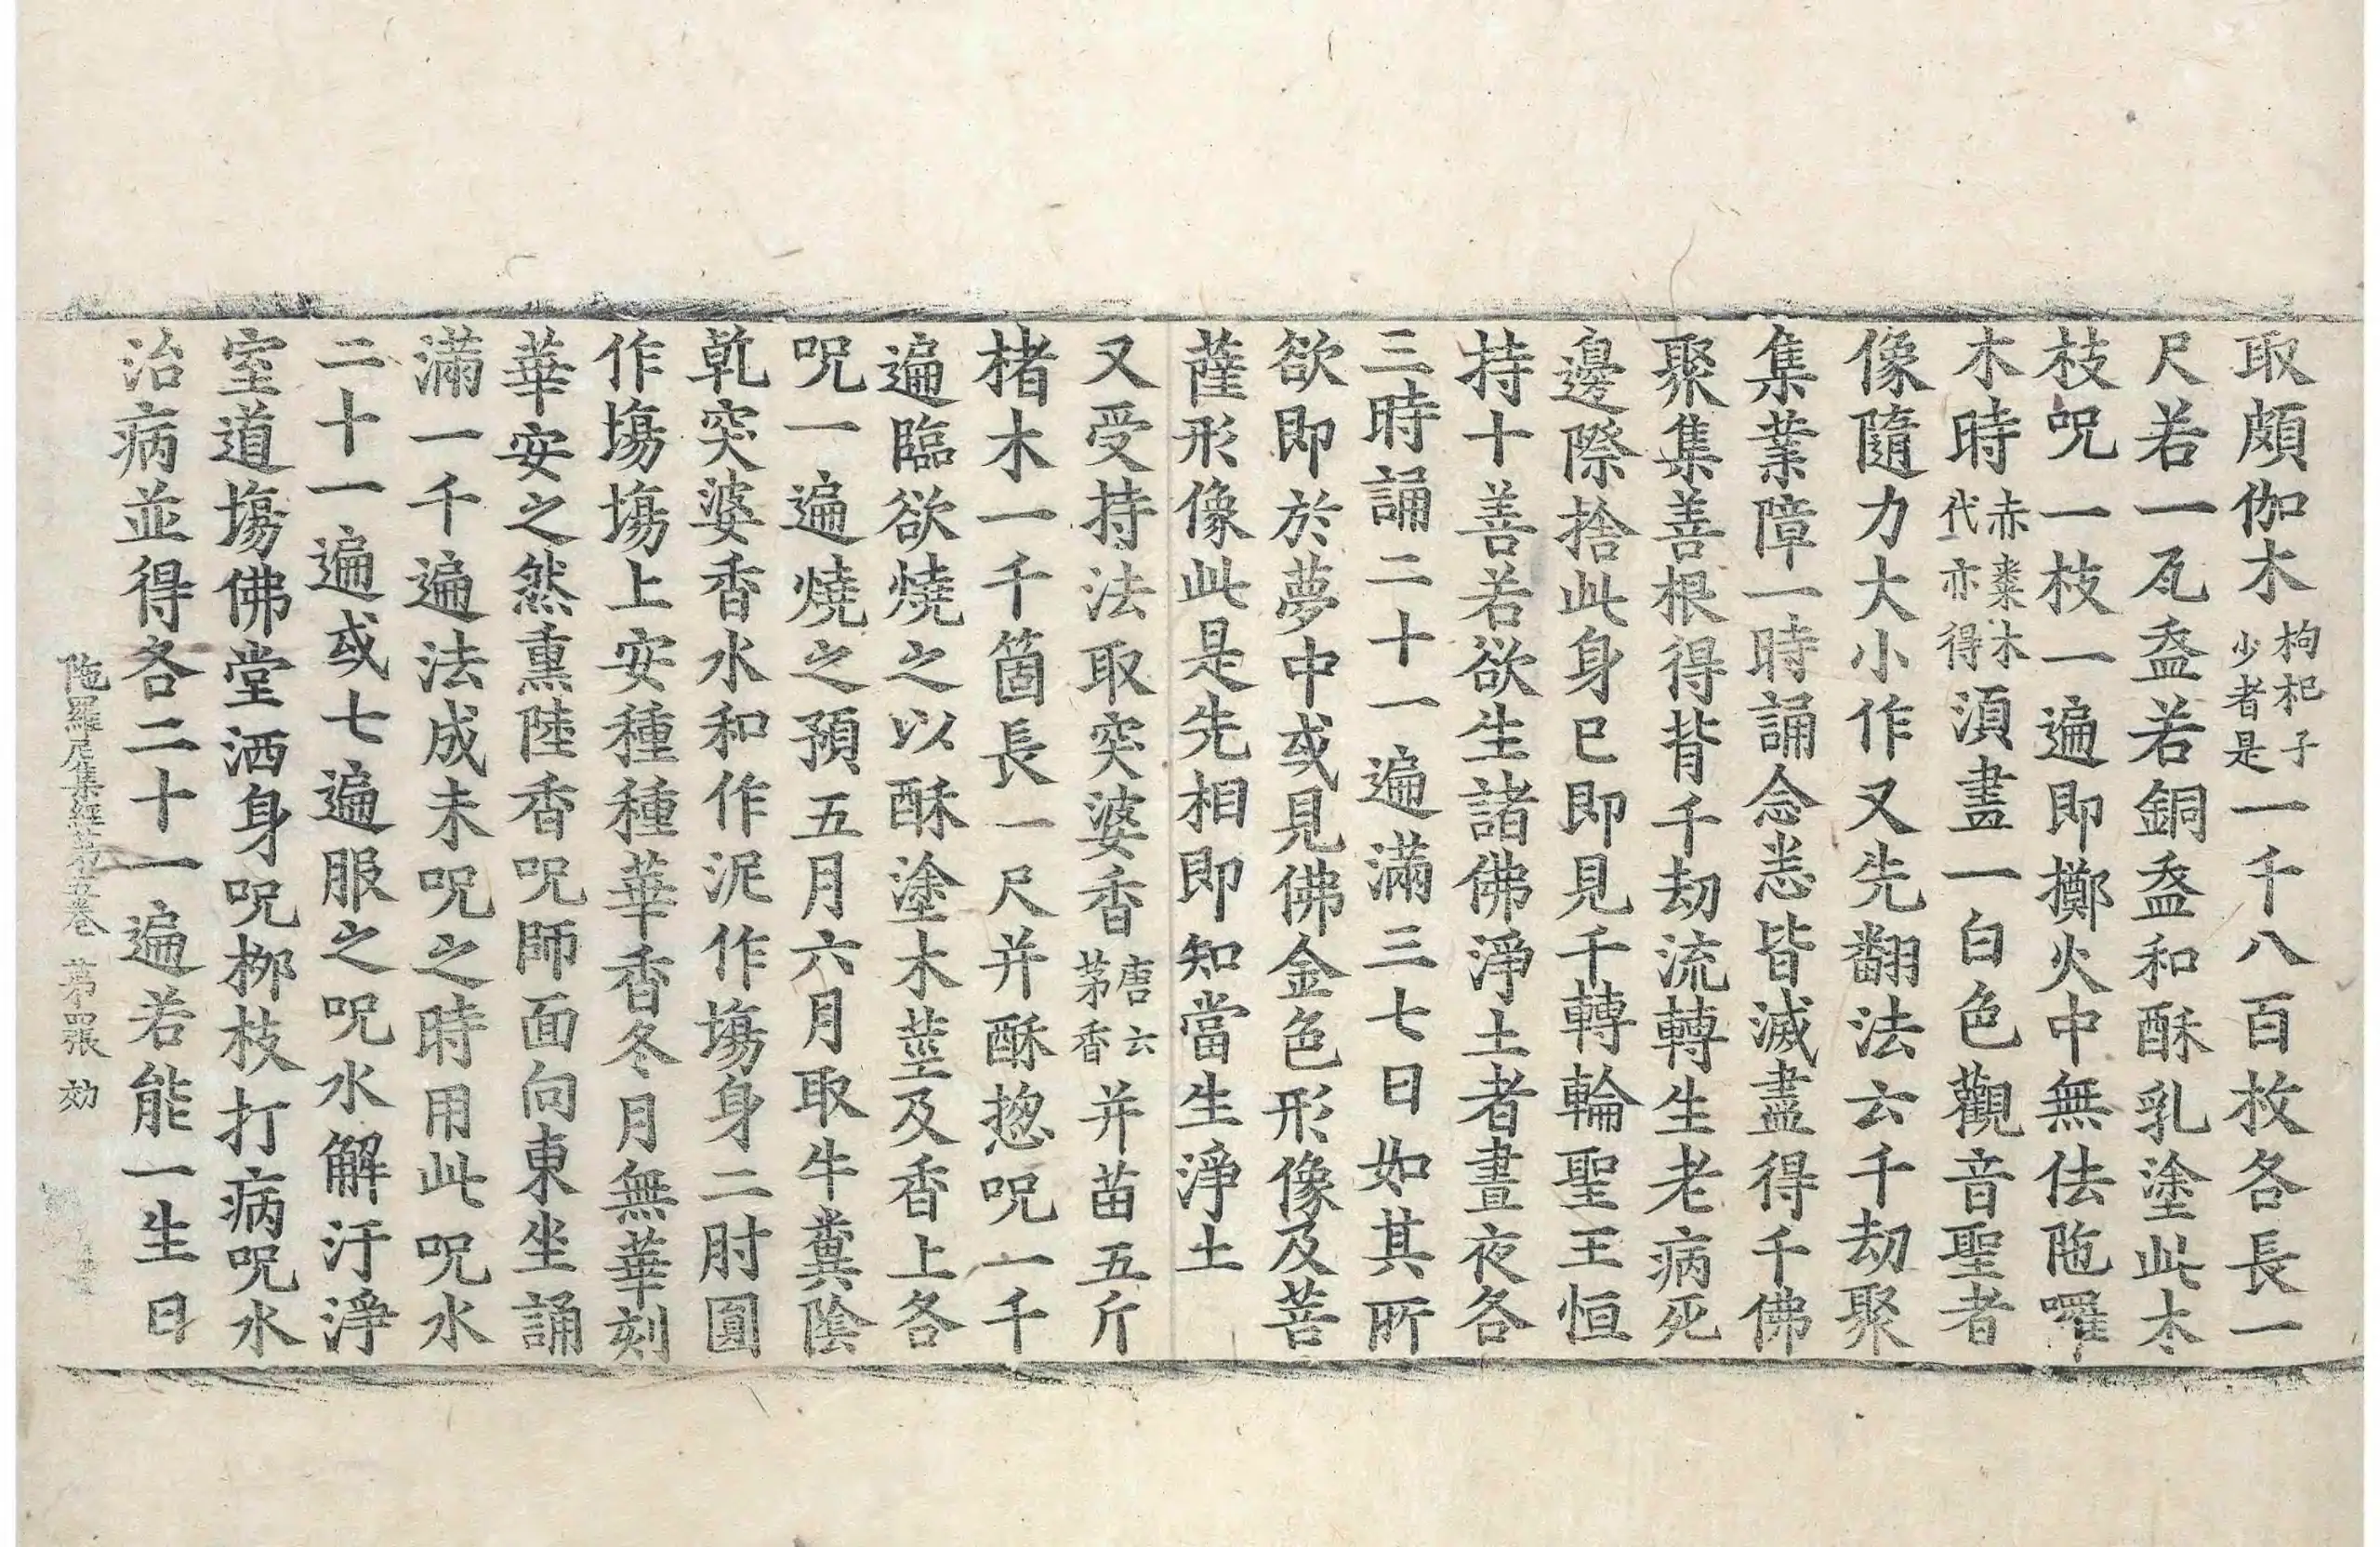 取頗伽木枸杞子少者是一千八百枚各長一
尺若一瓦盔若銅盔和酥乳塗此木
枝呪一枝一遍即擲火中無佉陁囉
木時赤棗木代亦得湏盡一白色觀音聖者
像隨力大小作又先翻法云千劫聚
集業障一時誦念悉皆滅盡得千佛
聚集善根得背千劫流轉生老病死
邊際捨此身已即見千轉輪聖王恒
持十善若欲生諸佛淨土者晝夜各
三時誦二十一遍滿三七日如其所
欲即於夢中或見佛金色形像及菩
薩形像此是先相即知當生淨土
又受持法取突婆香唐云茅香并苗五斤
楮木一千箇長一尺并酥揔呪一千
遍臨欲燒之以酥塗木莖及香上各
呪一遍燒之預五月六月取牛糞陰
乾突婆香水和作泥作塲身二肘圓
作塲塲上安種種華香冬月無華刻
華安之然熏陸香呪師面向東坐誦
滿一千遍法成未呪之時用此呪水
二十一遍或七遍服之呪水解汙淨
室道塲佛堂洒身呪桞枝打病呪水
治病並得各二十一遍若能一生日
陁羅尼集經苐五卷 苐四張 効